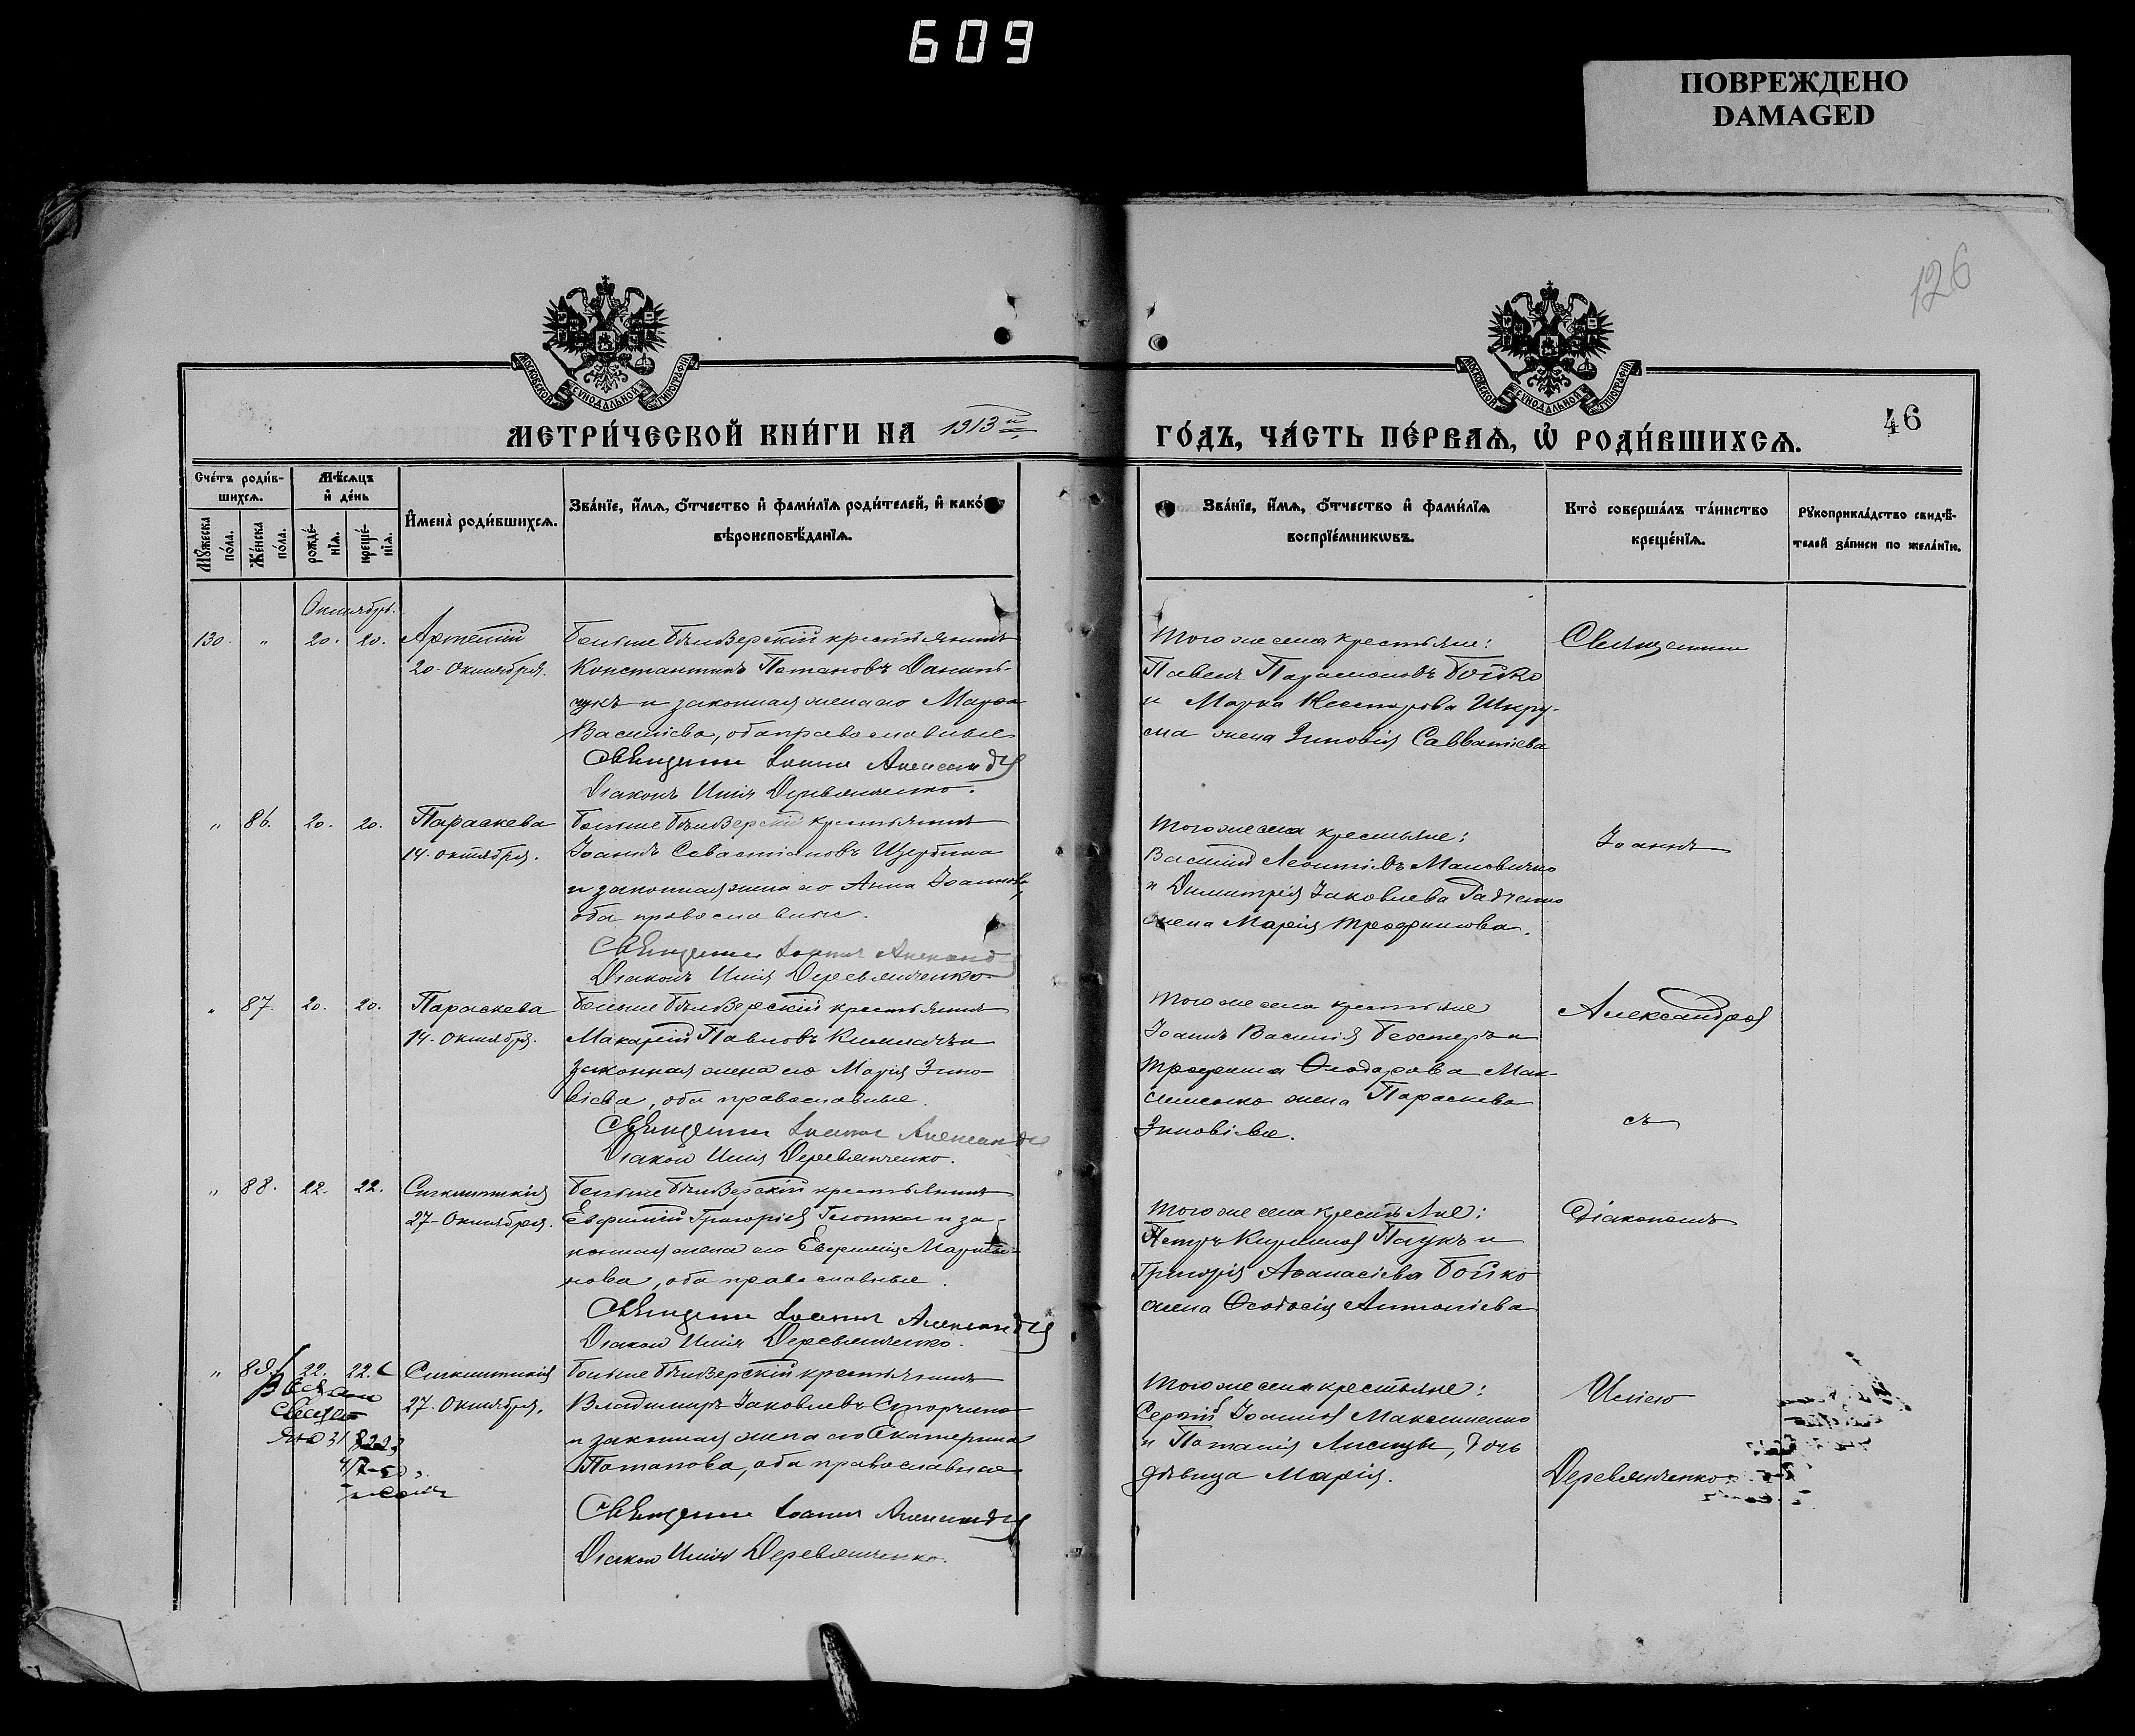 609
ПОВРЕЖДЕНО
DAMAGED
126
МОСКОВСКОЙ СУНОДАЛЬНОЙ ТИПОГРАФІИ
МОСКОВСКОЙ СУНОДАЛЬНОЙ ТИПОГРАФІИ
МЕТРИ́ЧЕСКОЙ КНИ́ГИ НА 1913й
ГО́ДЪ, ЧА́СТЬ ПЕ́РВАЯ, Ѡ РОДИ́ВШИХСЯ.
46
Сче́тъ роди́в-
шихся.
Мѣ́сяцъ
и҆ де́нь
Мꙋ́жеска
по́ла.
Же́нска
по́ла.
рожде́-
нїя.
креще́-
нїя.
И҆мена̀ роди́вшихся.
Зва́нїе, и҆́мя, ѻ҆́тчество и҆ фами́лїя роди́телей, и҆ како́
вѣроисповѣ́данїя.
Зва́нїе, и҆́мя, ѻ҆́тчество и҆ фами́лїя
воспрїе́мникѡвъ.
Кто̀ соверша́лъ та́инство
креще́нїя.
Рꙋкоприкла́дство свидѣ́-
телей за́писи по жела́нїю.
Октябрь.
130. " 20. 20. Артемій
20. Октября.
Больше Бѣлозерскій крестьянинъ
Константинъ Потаповъ Даниль-
чукъ и законная жена его Марфа
Василіева, оба православные
Священникъ Іоаннъ Александровъ
Діаконъ Илія Деревянченко.
Того же села крестьяне:
Павелъ Парамоновъ Бойко
и Марка Несторова Шкру-
жена Зиновія Савватіева
Священникъ
" 86. 20. 20. Параскева
14. октября.
Больше Бѣлозерскій крестьянинъ
Іоаннъ Севастіановъ Щербина
и законная жена его Анна Іоаннова,
оба православные.
Священникъ Іоаннъ Александровъ
Діаконъ Илія Деревянченко
Того же села крестьяне:
Василій Леонтіевъ
и Димитрія Іаковлева Радченко
жена Марія Трофимова.
Іоаннъ
" 87. 20. 20. Параскева
14. Октября.
Больше Бѣлозерскій крестьянинъ
Макарій Павловъ и
законная жена его Марія Зино-
віева, оба православные.
Священникъ Іоаннъ Александровъ
Діаконъ Илія Деревянченко.
Того же села крестьяне
Іоаннъ Василіевъ и
Трофима Ѳеодорова Мак-
жена Параскева
Зиновіева.
Александровъ
съ
" 88. 22. 22. Синклитикія
27. Октября.
Больше Бѣлозерскій крестьянинъ
Евфимій Григоріевъ и за-
конная жена его Евфимія Марты-
нова, оба православные.
Священникъ Іоаннъ Александровъ
Діаконъ Илія Деревянченко.
Того же села крестьяне:
Петръ Паукъ и
Григорія Аѳанасіева Бойко
жена Ѳеодосія Антоніева
Діакономъ
" 89. 22. 22. Синклитикія
27. Октября.
Больше Бѣлозерскій крестьянинъ
Владимиръ Іаковлевъ
и законная жена его Екатерина
Потапова, оба православные
Священникъ Іоаннъ Александровъ
Діаконъ Илія Деревянченко.
Того же села крестьяне:
Сергій Іоанновъ Максименко
и дочь
дѣвица Марія.
Иліею
Деревянченко